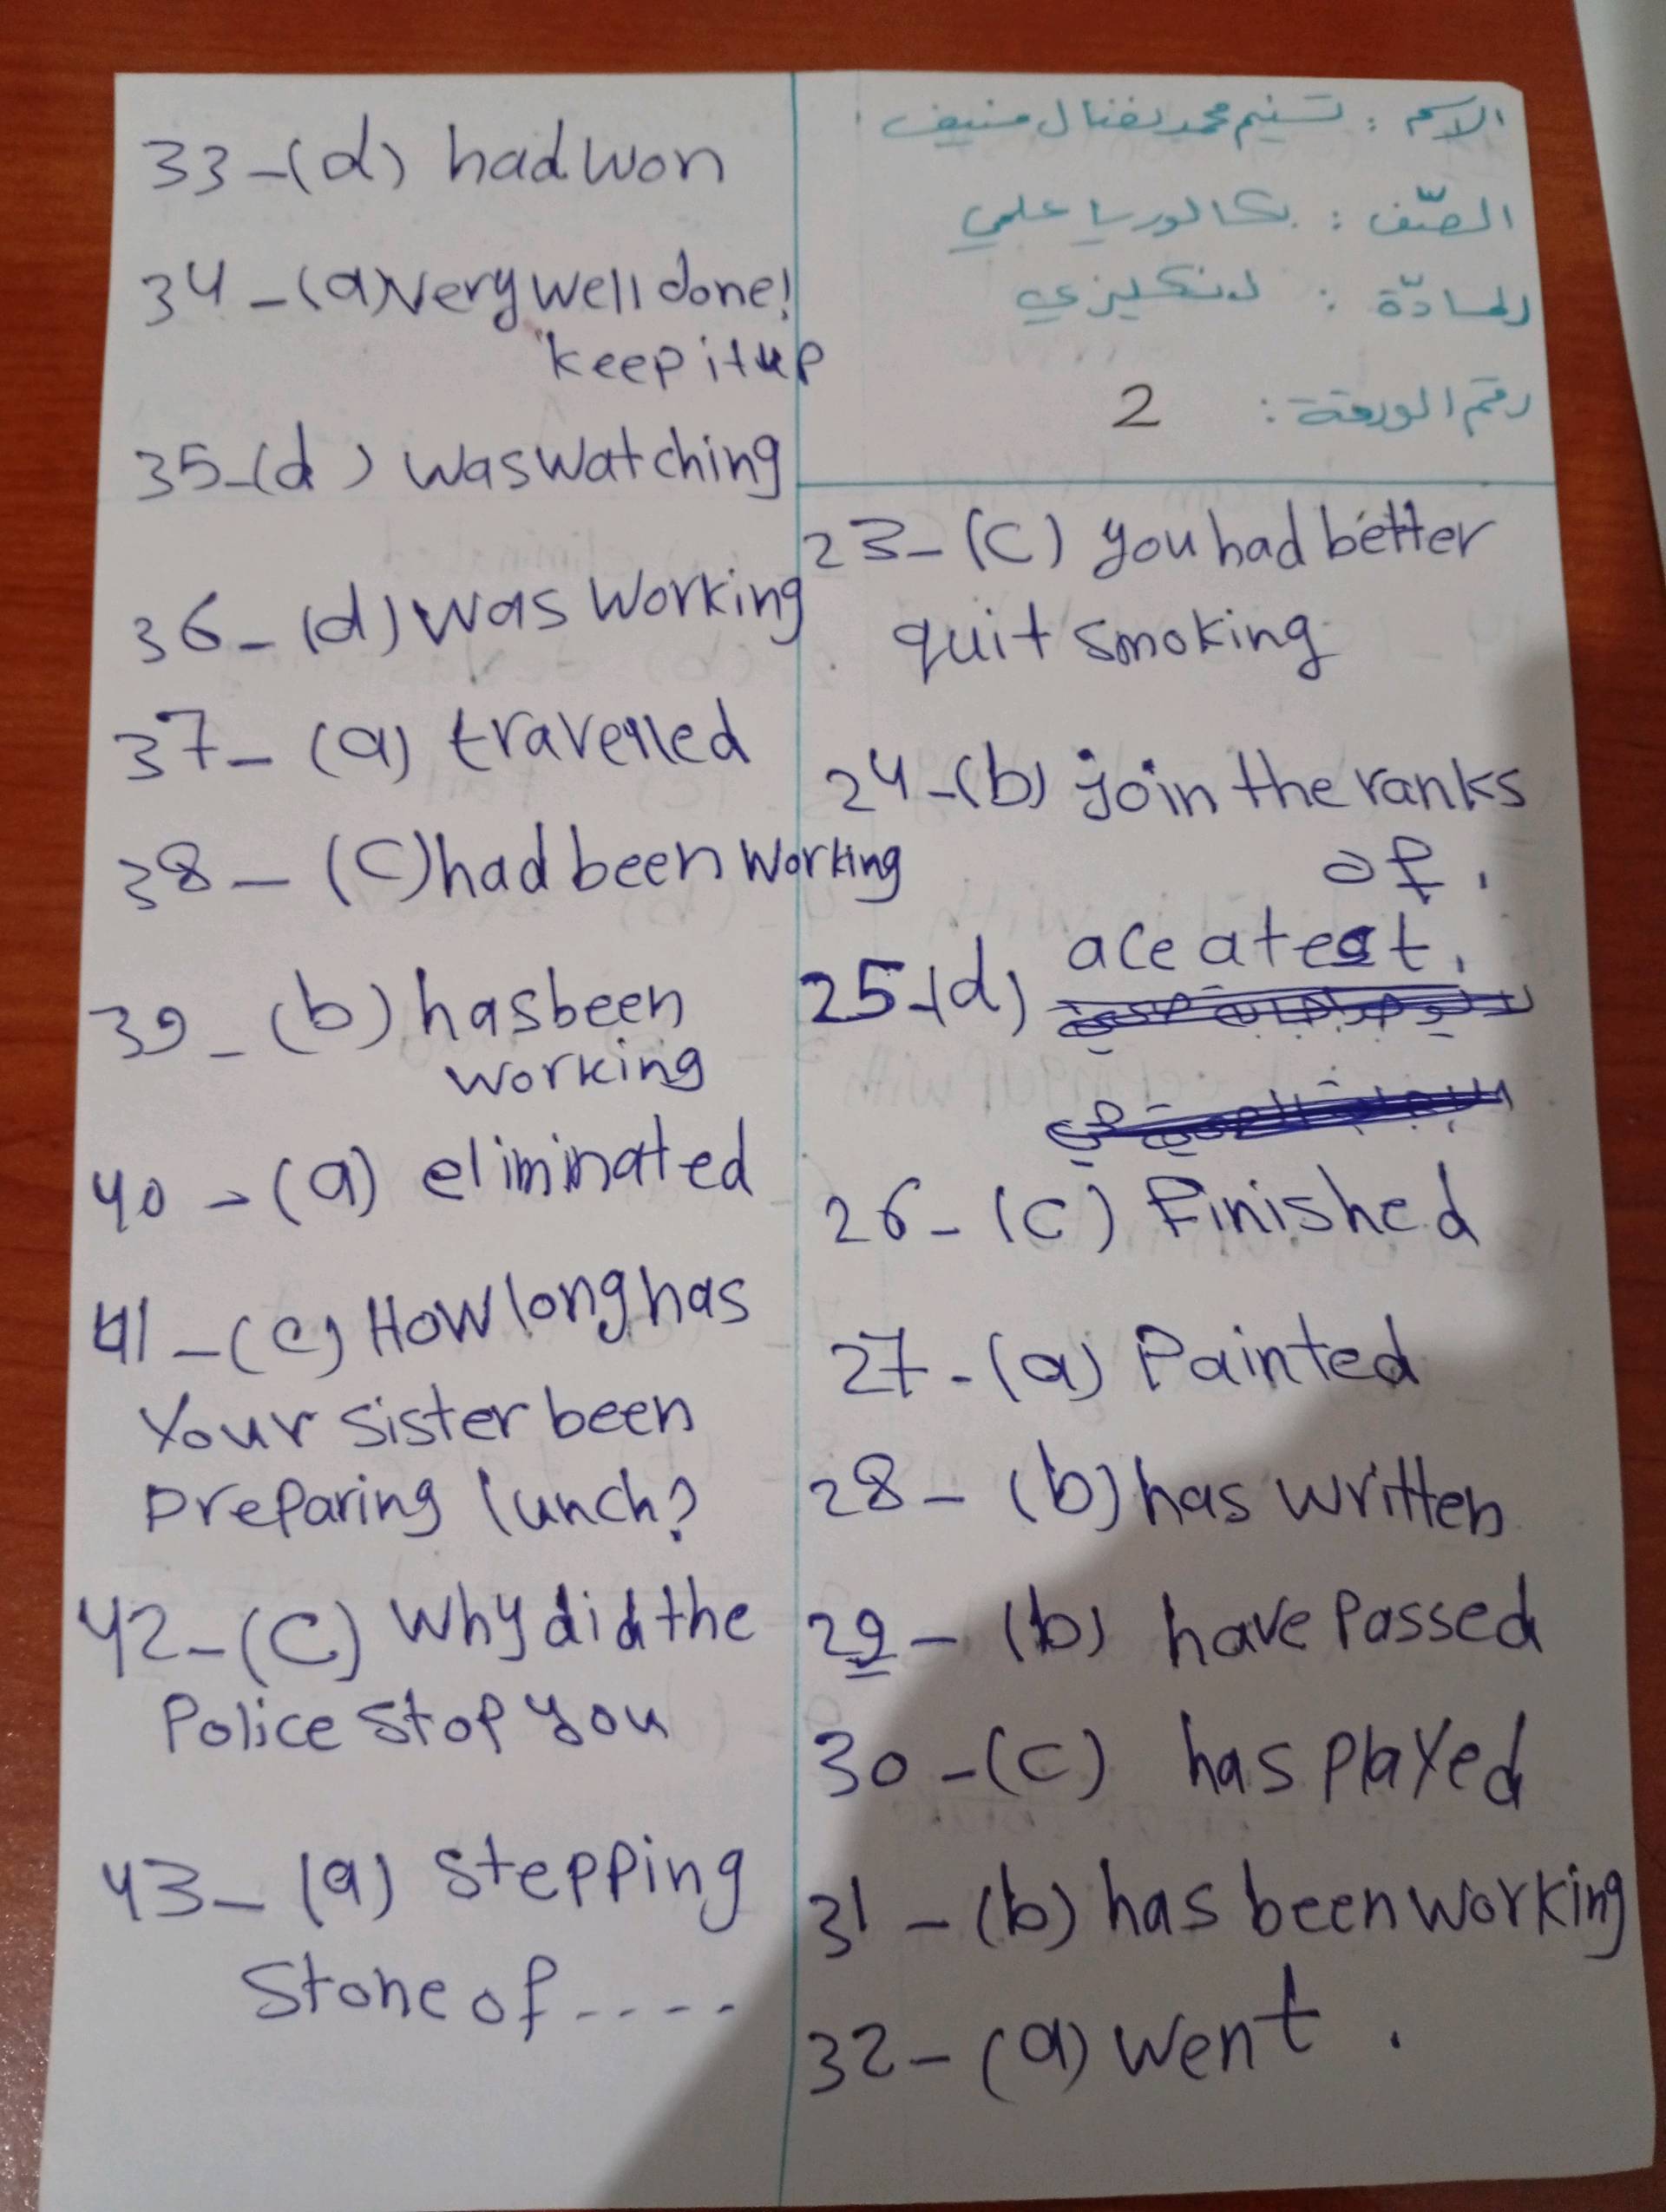 الاسم : تسنيم محمد نضال منيف
الصّف : بكالوريا علمي
المادّة : لانكليزي
رقم الورقة : 2
23-(C) you had better
quit smoking
24-(b) join the ranks
of.
25-(d) ace a test.
26-(c) Finished
27-(a) Painted
28-(b) has written
29-(b) have Passed
30-(c) has played
31-(b) has been working
32-(a) went.
33-(d) had won
34-(a) Very well done!
keep it up
35-(d) was watching
36-(d) was working
37-(a) travelled
38-(C) had been working
39-(b) has been
working
40-(a) eliminated
41-(c) How long has
Your sister been
Preparing lunch?
42-(C) Why did the
Police stop you
43-(a) stepping
Stone of.....